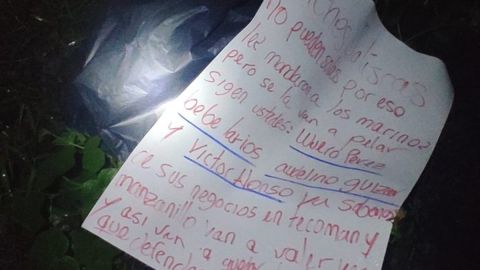 no pueden mas por eso
les mandaron a los marinos
pero se la van a pelar
sigen ustedes: Wuero Perez
bebe larios aurelino guizar
y Victor Alonso ya sabemos
de sus negocios en tecoman y
manzanillo van a valer
y asi van a
que defiende